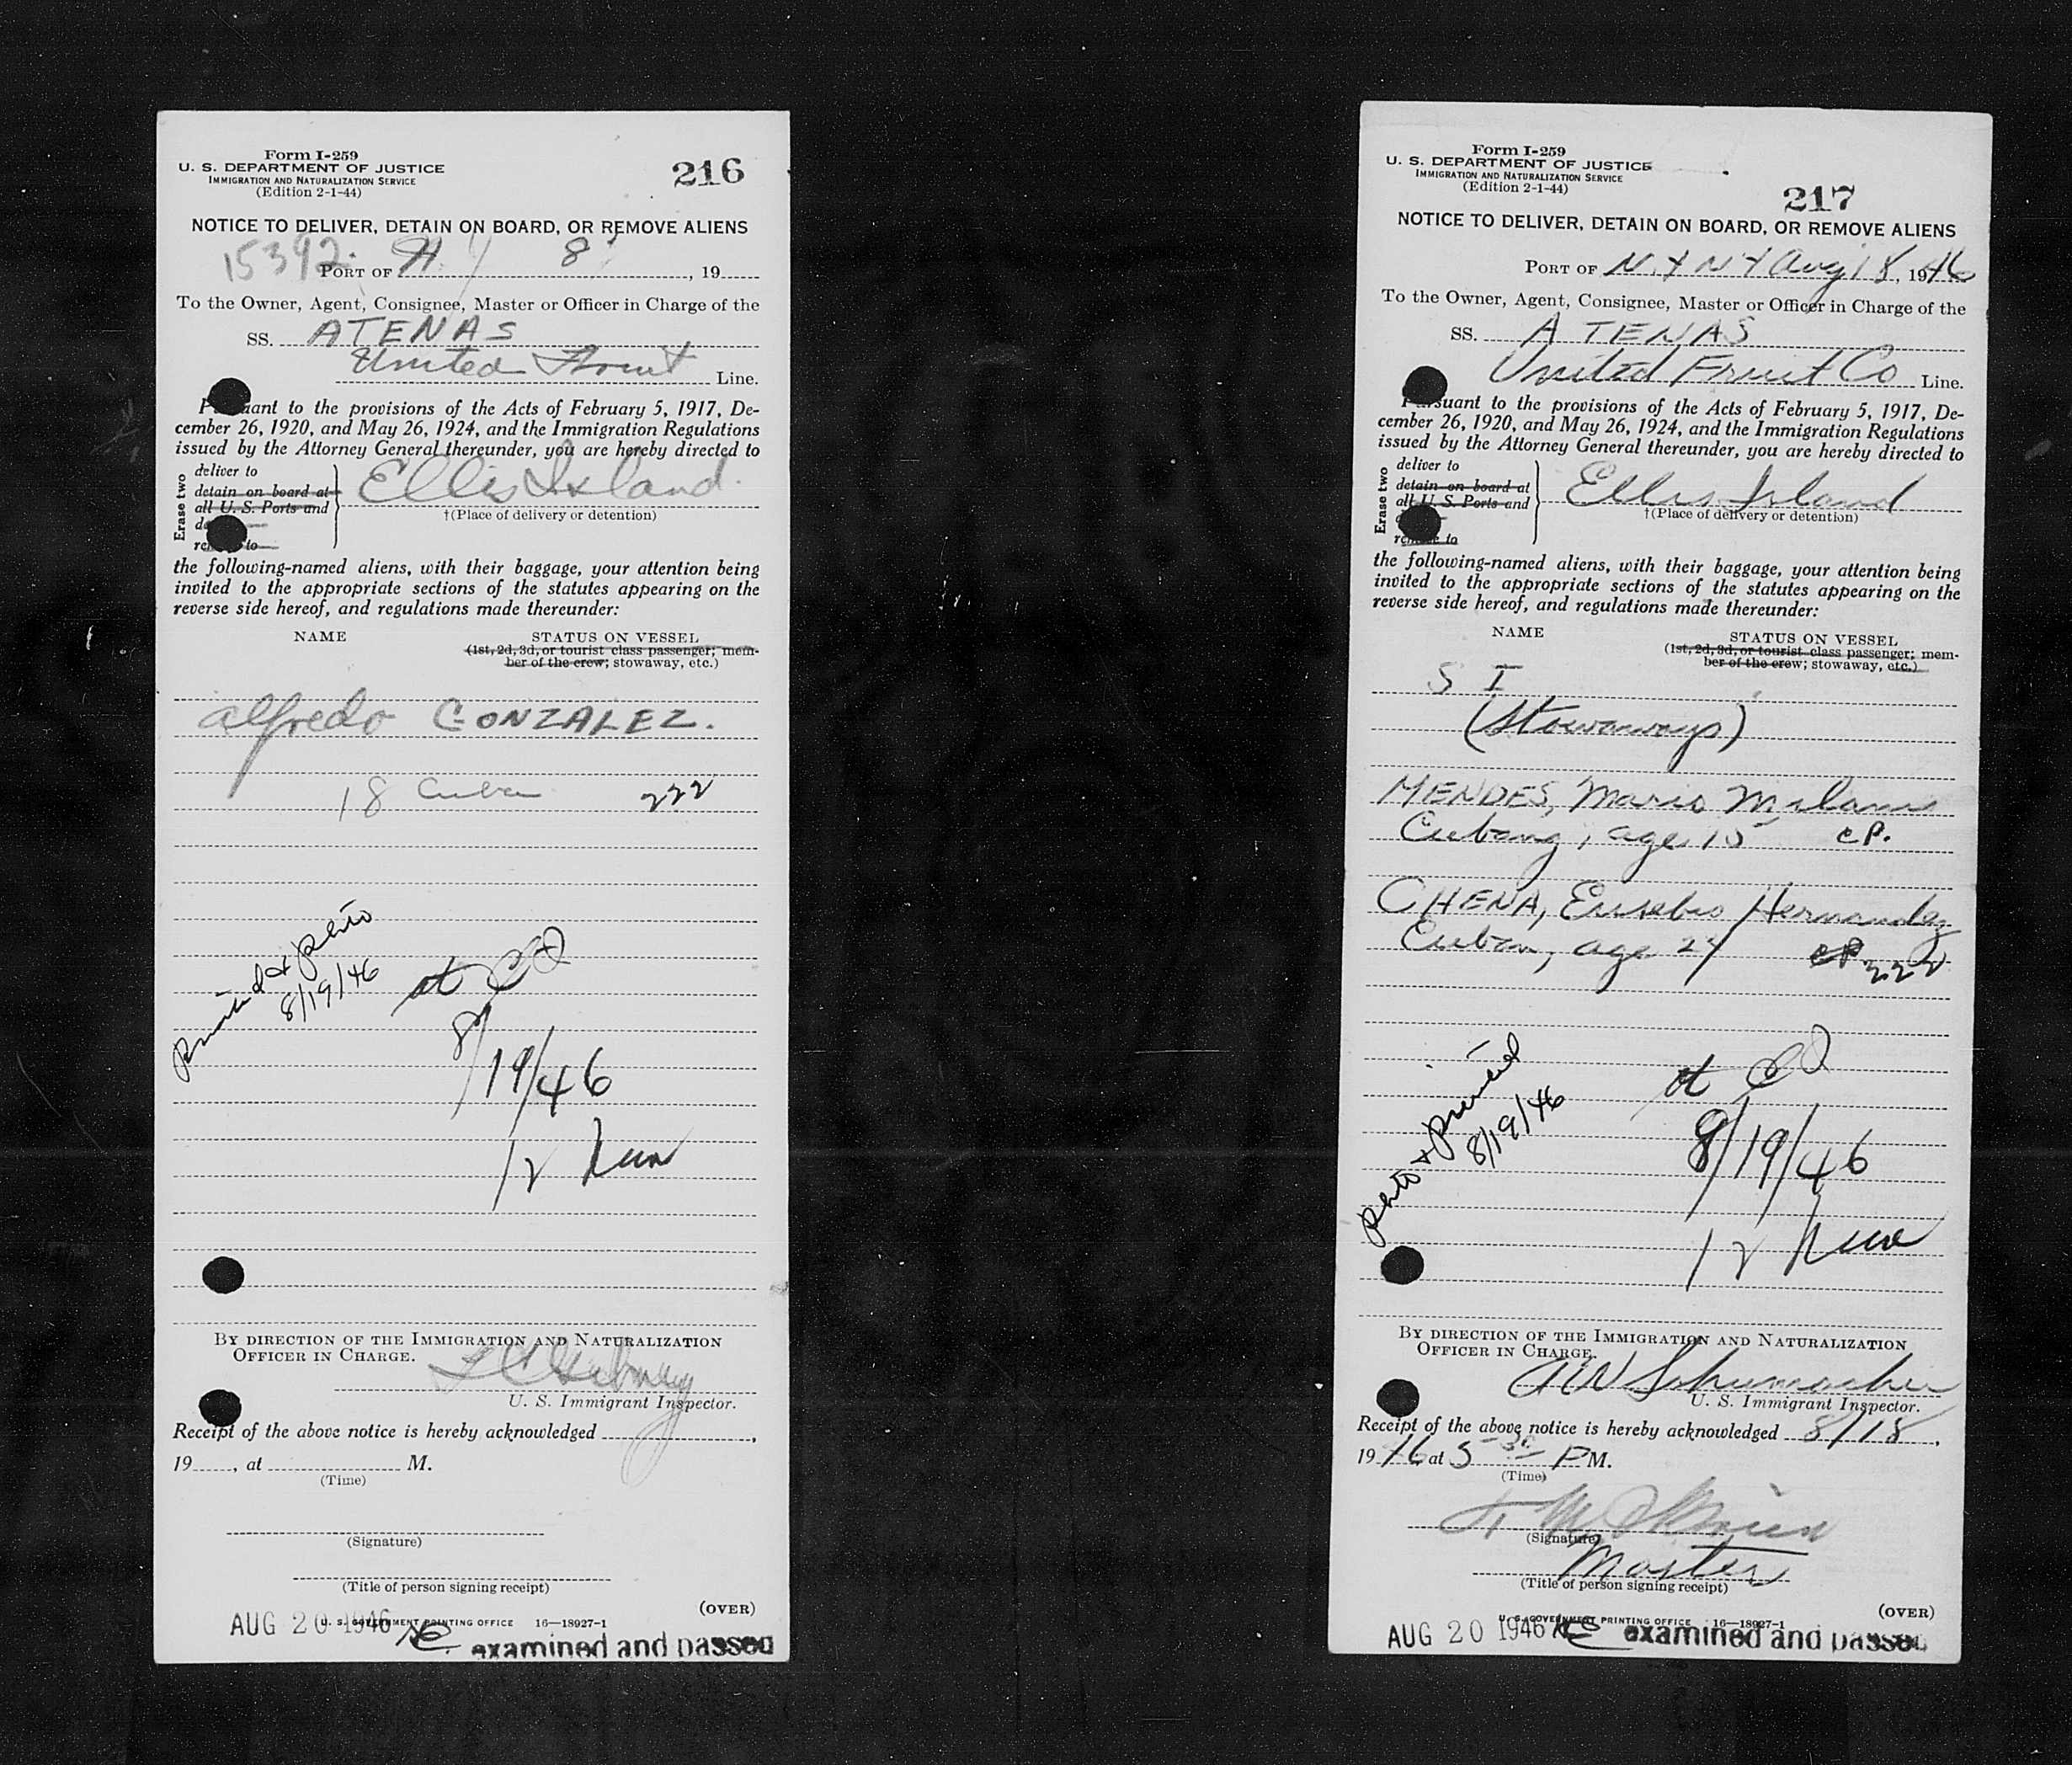 Form I-259
U. S. DEPARTMENT OF JUSTICE
IMMIGRATION AND NATURALIZATION SERVICE
(Edition 2-1-44)
216
NOTICE TO DELIVER, DETAIN ON BOARD, OR REMOVE ALIENS
15392
PORT OF 8, 19
To the Owner, Agent, Consignee, Master or Officer in Charge of the
SS. ATENAS
United Fruit Line.
Pursuant to the provisions of the Acts of February 5, 1917, De-
cember 26, 1920, and May 26, 1924, and the Immigration Regulations
issued by the Attorney General thereunder, you are hereby directed to
Erase two
deliver to
detain on board at
all U. S. Ports and
remove to
Ellis Island.
†(Place of delivery or detention)
the following-named aliens, with their baggage, your attention being
invited to the appropriate sections of the statutes appearing on the
reverse side hereof, and regulations made thereunder:
NAME STATUS ON VESSEL
(1st, 2d, 3d, or tourist class passenger; mem-
ber of the crew; stowaway, etc.)
Alfredo GONZALEZ.
18 Cuban 222
printed & photo
8/19/46
at
8/19/46
12
BY DIRECTION OF THE IMMIGRATION AND NATURALIZATION
OFFICER IN CHARGE.
U. S. Immigrant Inspector.
Receipt of the above notice is hereby acknowledged ,
19 , at M.
(Time)
(Signature)
(Title of person signing receipt)
(OVER)
U. S. GOVERNMENT PRINTING OFFICE 16—18927-1
AUG 20 1946
examined and passed
Form I-259
U. S. DEPARTMENT OF JUSTICE
IMMIGRATION AND NATURALIZATION SERVICE
(Edition 2-1-44)
217
NOTICE TO DELIVER, DETAIN ON BOARD, OR REMOVE ALIENS
PORT OF N.Y N Y Aug 18, 1946
To the Owner, Agent, Consignee, Master or Officer in Charge of the
SS. ATENAS
United Fruit Co Line.
Pursuant to the provisions of the Acts of February 5, 1917, De-
cember 26, 1920, and May 26, 1924, and the Immigration Regulations
issued by the Attorney General thereunder, you are hereby directed to
Erase two
deliver to
detain on board at
all U. S. Ports and
remove to
Ellis Island
†(Place of delivery or detention)
the following-named aliens, with their baggage, your attention being
invited to the appropriate sections of the statutes appearing on the
reverse side hereof, and regulations made thereunder:
NAME STATUS ON VESSEL
(1st, 2d, 3d, or tourist class passenger; mem-
ber of the crew; stowaway, etc.)
S I
(Stowaways)
MENDES, Mario
age 15 CP.
CHENA, Eusebio Hernandez
Cuban, age 24 CP 222
photo & printed
8/19/46
at
8/19/46
12
BY DIRECTION OF THE IMMIGRATION AND NATURALIZATION
OFFICER IN CHARGE.
Schumacher
U. S. Immigrant Inspector.
Receipt of the above notice is hereby acknowledged 8/18,
1946 at 5 30 P M.
(Time)
(Signature)
Master
(Title of person signing receipt)
(OVER)
U. S. GOVERNMENT PRINTING OFFICE 16—18927-1
AUG 20 1946
examined and passed